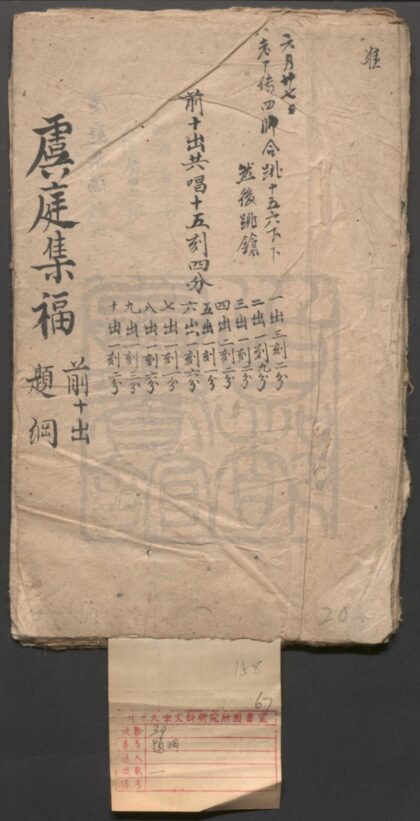 准
六月廿七日
老下传四脚合跳十五六下下
然後跳鎗
前十出共唱十五刻四分
一出三刻二分
二出一刻九分
三出一刻三分
四出二刻二分
五出一刻一分
六出一刻六分
七出一刻一分
八出一刻六分
九出一刻三分
十出一刻二分
虞庭集福
前十出
題綱
20
158
67
大学文科研究所圖書室
39
題綱
一